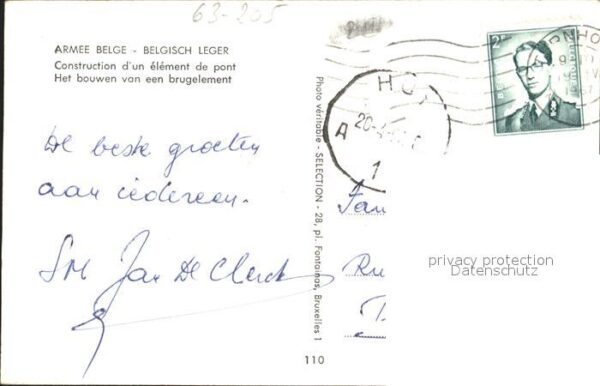 63-205
ARMEE BELGE - BELGISCH LEGER
Construction d'un élément de pont
Het bouwen van een brugelement
De beste groeten
aan iedereen.
SM Jan De Clerck
Photo véritable - SELECTION - 28, pl. Fontainas, Bruxelles 1
110
HO
A
20-
1
2F
Fam
Ru
privacy protection
Datenschutz